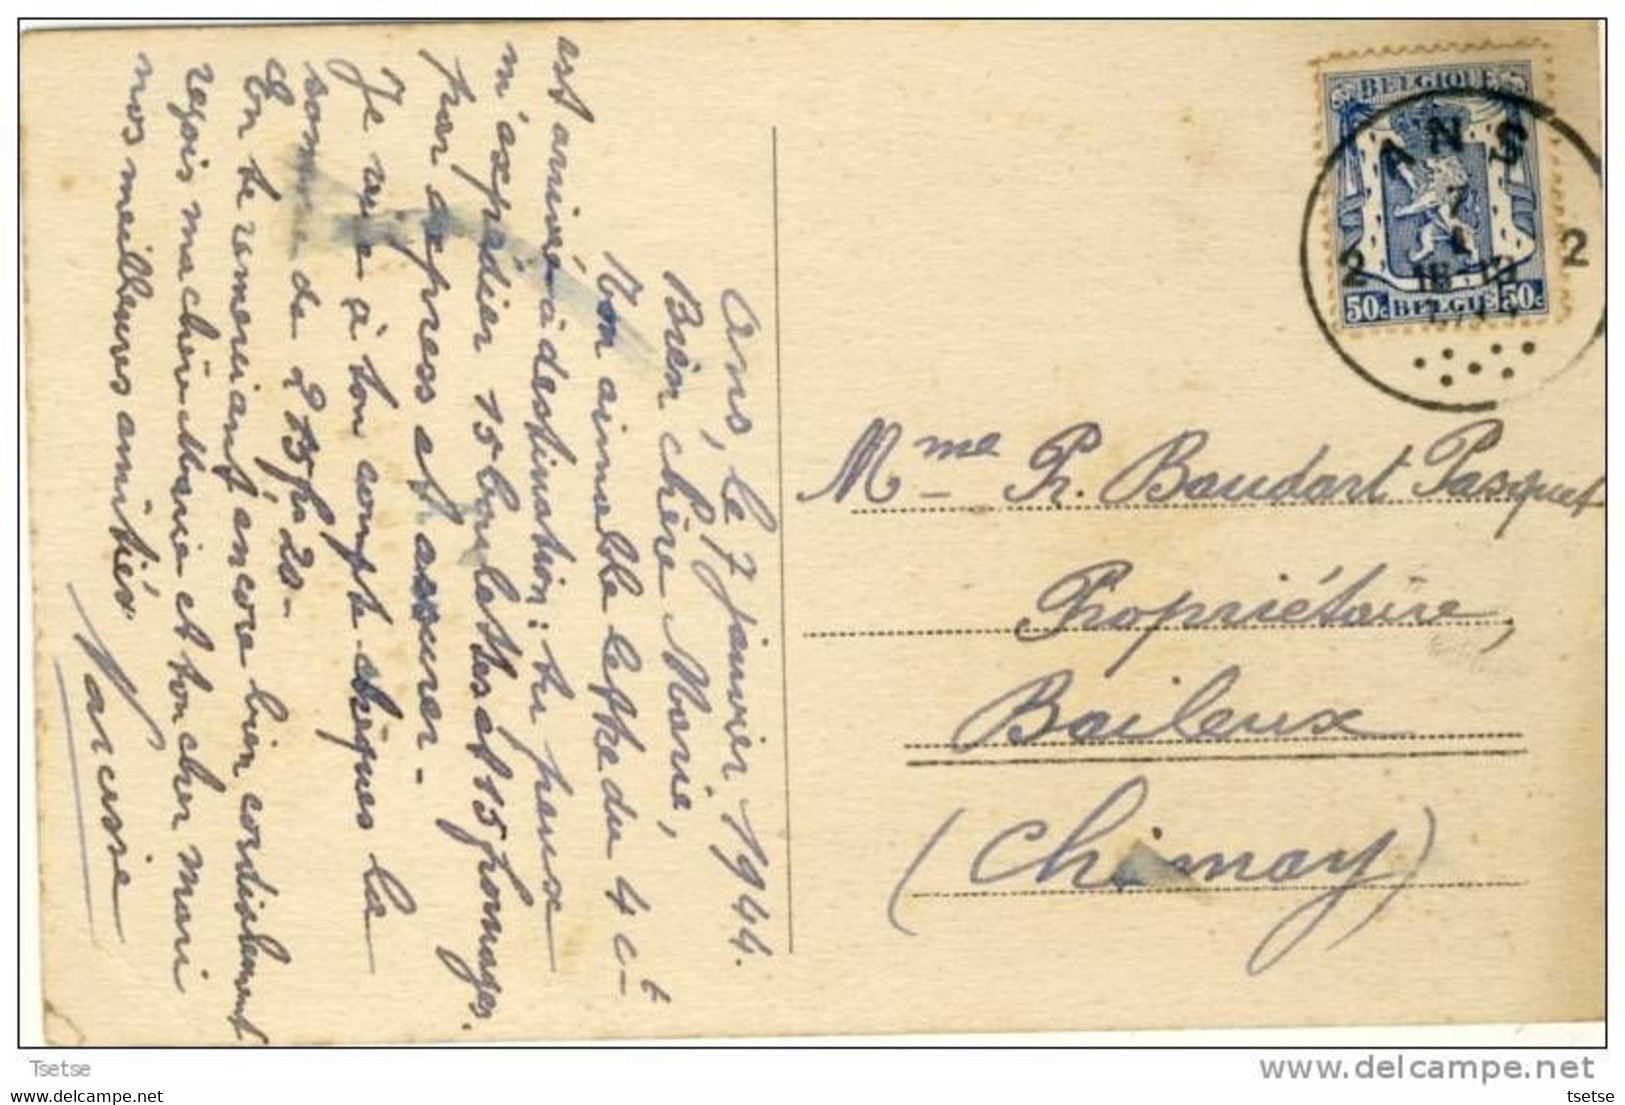 Ans, le 7 janvier 1944.
Bien chère Marie,
Ton aimable lettre du 4 ct
est arrivée à destination; tu peux
m'expédier 15 boulettes et 15 fromages
par express et assurer -
Je vire à ton compte-chèques la
somme de 215 fr 20 -
En te remerciant encore bien cordialement
reçois ma chère Marie et ton cher mari
nos meilleures amitiés
BELGIQUE
50c BELGIE 50c
ANS
7
1
2 2
Mme Pr. Baudart Pasquet
Propriétaire,
Baileux
(Chimay)
Tsetse
delcampe.net
www.delcampe.net
tsetse